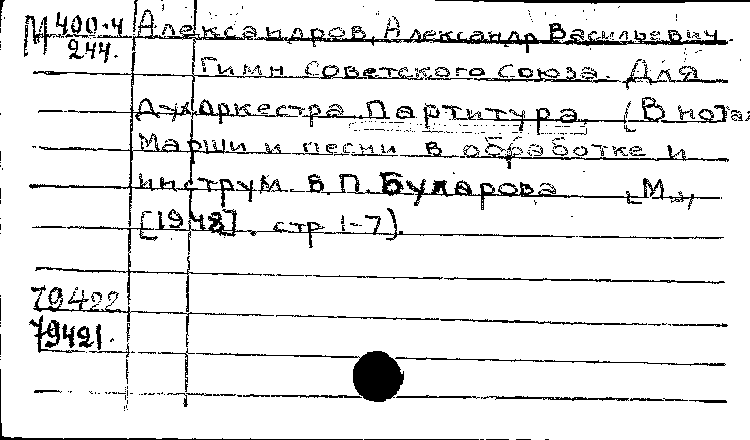 М 400-4 Александров, Александр Васильевич.
244.
Гимн Советского Союза. Для
дух. оркестра. Партитура. (В нотах
Марши и песни в обработке и
инструм. В. П. Бухарова [М.],
[1948]. стр 1-7).
79422
79421.